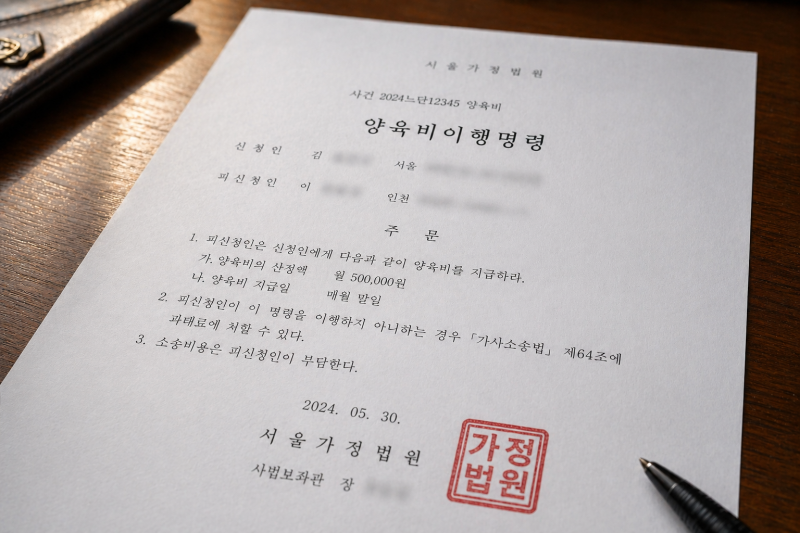 서울가정법원
사건 2024느단12345 양육비
양육비이행명령
신청인 김 서울
피신청인 이 인천
주문
1. 피신청인은 신청인에게 다음과 같이 양육비를 지급하라.
가. 양육비의 산정액 월 500,000원
나. 양육비 지급일 매월 말일
2. 피신청인이 이 명령을 이행하지 아니하는 경우 「가사소송법」 제64조에
과태료에 처할 수 있다.
3. 소송비용은 피신청인이 부담한다.
2024. 05. 30.
서울가정법원
사법보좌관 장
가정
법원